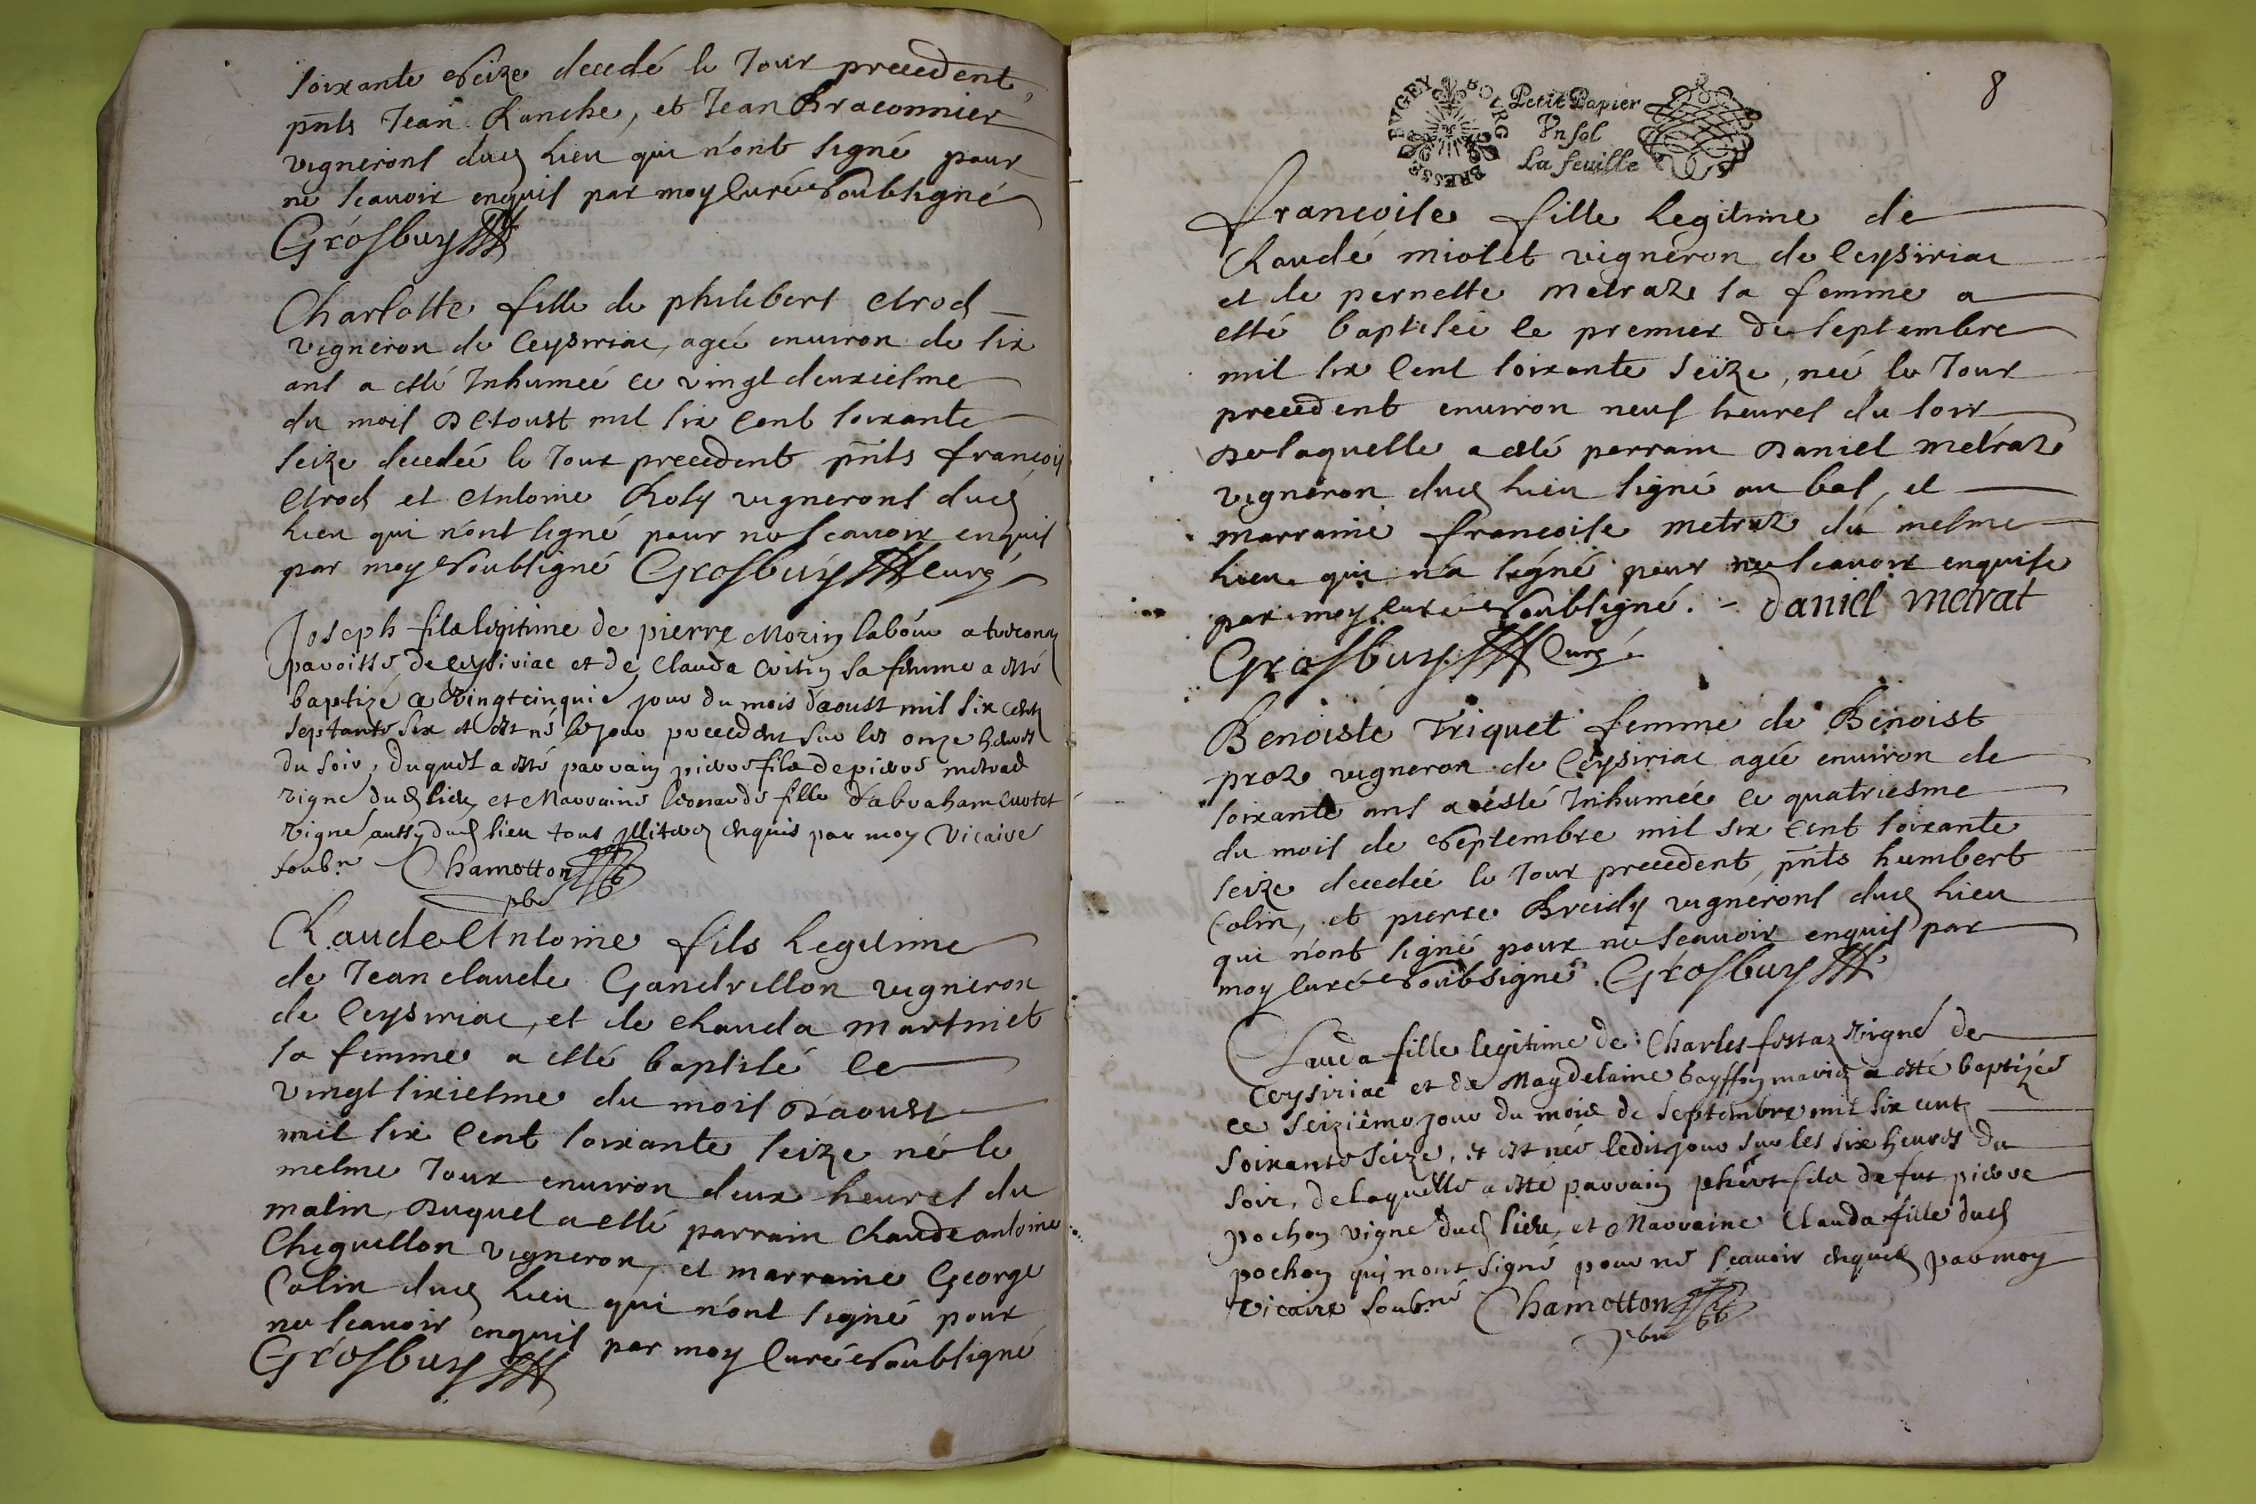 soixante seize decedé le Jour precedent,
pnts Jean Ranche, et Jean Braconnier
vignerons dud lieu qui n'ont signé pour
ne scavoir enquis par moy Curé soubsigné
Grosbuy
Charlotte fille de philibert
vigneron de Ceysiriac, agée environ de six
ans a esté Inhumeé ce vingt deuxiesme
du mois D'Aoust mil six cent soixante
seize decedeé le Jour precedent pnts francois
et Antoine Roly vignerons dud
lieu qui n'ont signé pour ne scavoir enquis
par moy soubsigné Grosbuy Curé
Joseph fils legitime de pierre Morin labour a
paroisse de Ceysiriac et de Clauda sa femme a esté
baptizé ce vingtcinquie jour du mois d'aoust mil six cent
septante six et est né le jour precedent sur les onze heures
du soir, duquel a esté parrain pierre fils de pierre metrad
vigne dud lieu et Marraine leonarde fille d'abraham Curtet
vigne aussy dud lieu tous illiteres enquis par moy vicaire
soubne Chamotton
pbr
Claude Antoine fils legitime
de Jean claude Gandrillon vigneron
de Ceysiriac, et de Clauda martinet
sa femme a esté baptisé le
vingt sixiesme du mois D'aoust
mil six cent soixante seize né le
mesme Jour environ deux heures du
matin, Duquel a esté parrain Claude antoine
Chiquellon vigneron, et marraine George
Colin dud lieu qui n'ont signé pour
ne scavoir enquis par moy Curé soubsigné
Grosbuy
8
BOURG BRESSE BVGEY
Petit Papier
Vn sol
La feuille
francoise fille legitime de
Claude miolet vigneron de Ceysiriac
et de pernette metraz sa femme a
esté baptiseé le premier de septembre
mil six cent soixante seize, neé le Jour
precedent environ neuf heures du soir
De laquelle a esté parrain Daniel metraz
vigneron dud lieu signé au bas, et
marraine francoise metraz du mesme
lieu qui n'a signé pour ne scavoir enquise
par moy curé soubsigné. - daniel metrat
Grosbuy Curé
Benoiste Triquet femme de Benoist
proz vigneron de Ceysiriac ageé environ de
soixante ans a esté Inhumeé ce quatriesme
du mois de septembre mil six cent soixante
seize decedeé le Jour precedent, pnts humbert
Colin, et pierre Breidy vignerons dud lieu
qui n'ont signé pour ne scavoir enquis par
moy curé soubsigné. Grosbuy
Clauda fille legitime de Charles fossaz vigne de
Ceysiriac et de Magdelaine bayffon mariez a esté baptizeé
ce seizième jour du mois de septembre mil six cent
soixante seize, et est neé ledit jour sur les six heures du
soir, de laquelle a esté parrain phibert fils de fut pierre
pochon vigne dud lieu, et Marraine Clauda fille dud
pochon qui n'ont signé pour ne scavoir enquis par moy
vicaire soubné Chamotton
pbr